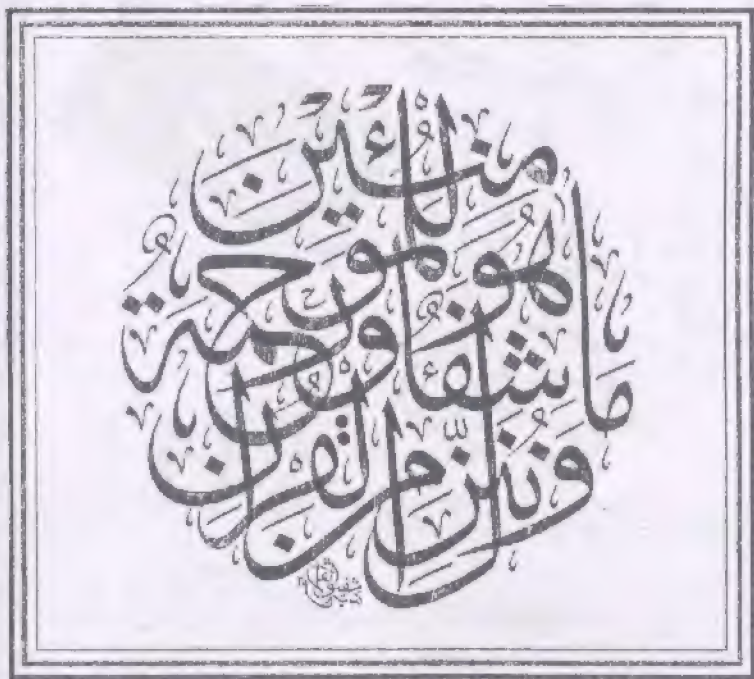 وننزل من القرآن
ما هو شفاء ورحمة
للمؤمنين